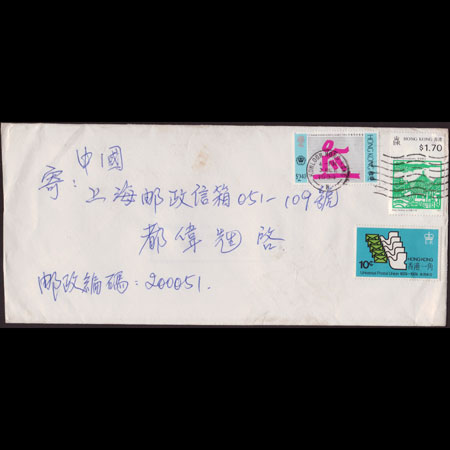 中國
寄：上海邮政信箱051-109號
都偉 啓
邮政編碼：200051.
HONG KONG 香港
$1.70
HONG KONG 香港
10c
HONG KONG
香港一角
Universal Postal Union 1874-1974